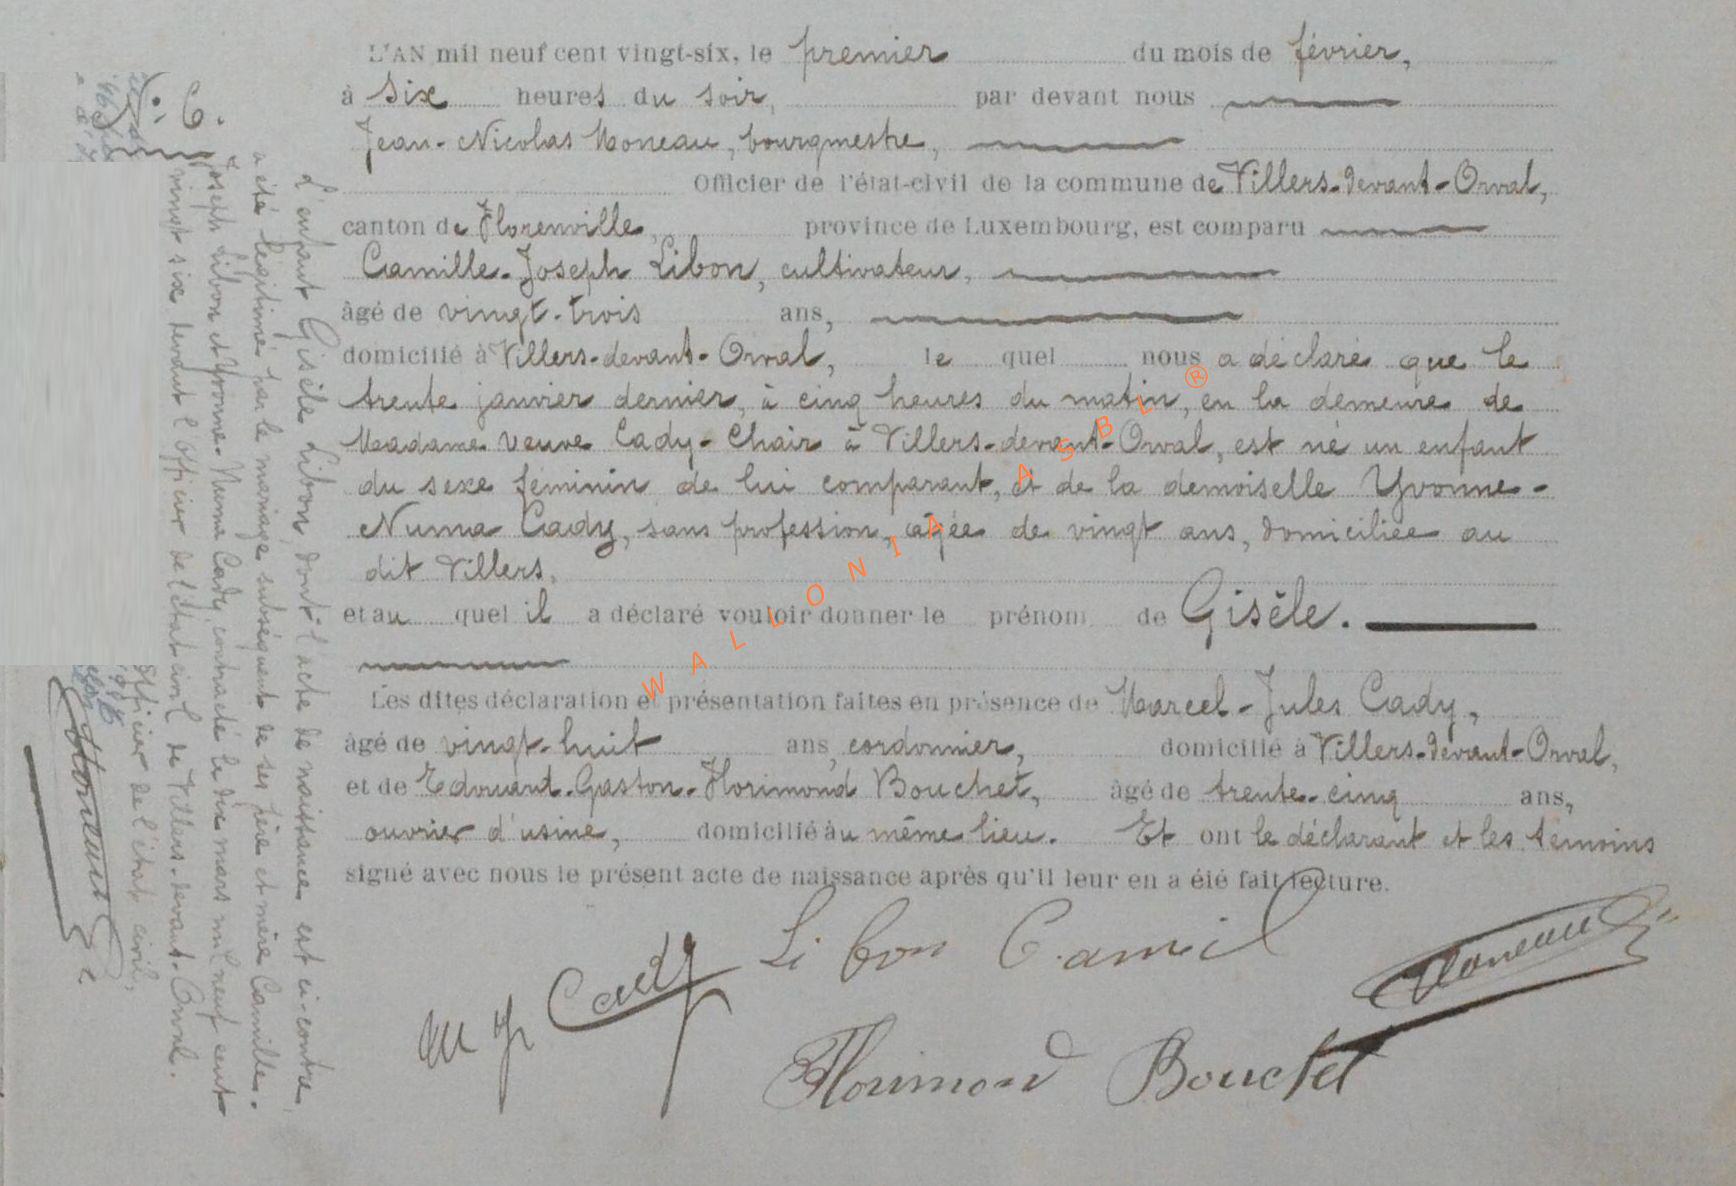 L'AN mil neuf cent vingt-six, le premier du mois de février,
à six heures du soir, par devant nous
Jean-Nicolas Moneau, bourgmestre,
Officier de l'état-civil de la commune de Villers-devant-Orval,
canton de Florenville, province de Luxembourg, est comparu
Camille-Joseph Libon, cultivateur,
âgé de vingt-trois ans,
domicilié à Villers-devant-Orval, le quel nous a déclaré que le
trente janvier dernier, à cinq heures du matin, en la demeure de
Madame veuve Cady-Chair à Villers-devant-Orval, est né un enfant
du sexe féminin de lui comparant, et de la demoiselle Yvonne-
Numa Cady, sans profession, âgée de vingt ans, domiciliée au
dit Villers,
et au quel il a déclaré vouloir donner le prénom de Gisèle.
Les dites déclaration et présentation faites en présence de Marcel-Jules Cady,
âgé de vingt-huit ans, cordonnier, domicilié à Villers-devant-Orval,
et de Edouard-Gaston-Florimond Bouchet, âgé de trente-cinq ans,
ouvrier d'usine, domicilié au même lieu. Et ont le déclarant et les témoins
signé avec nous le présent acte de naissance après qu'il leur en a été fait lecture.
Libon Camil
M J Cady
Moneau
Florimond Bouchet
6.
L'enfant Gisèle Libon, dont l'acte de naissance est ci-contre,
a été légitimé par le mariage subséquent de ses père et mère Camille-
Joseph Libon et Yvonne-Numa Cady, contracté le dix mars mil neuf cent
vingt six devant l'Officier de l'état civil de Villers-devant-Orval.
Officier de l'état civil,
Moneau
WALLONIA ASBL ®